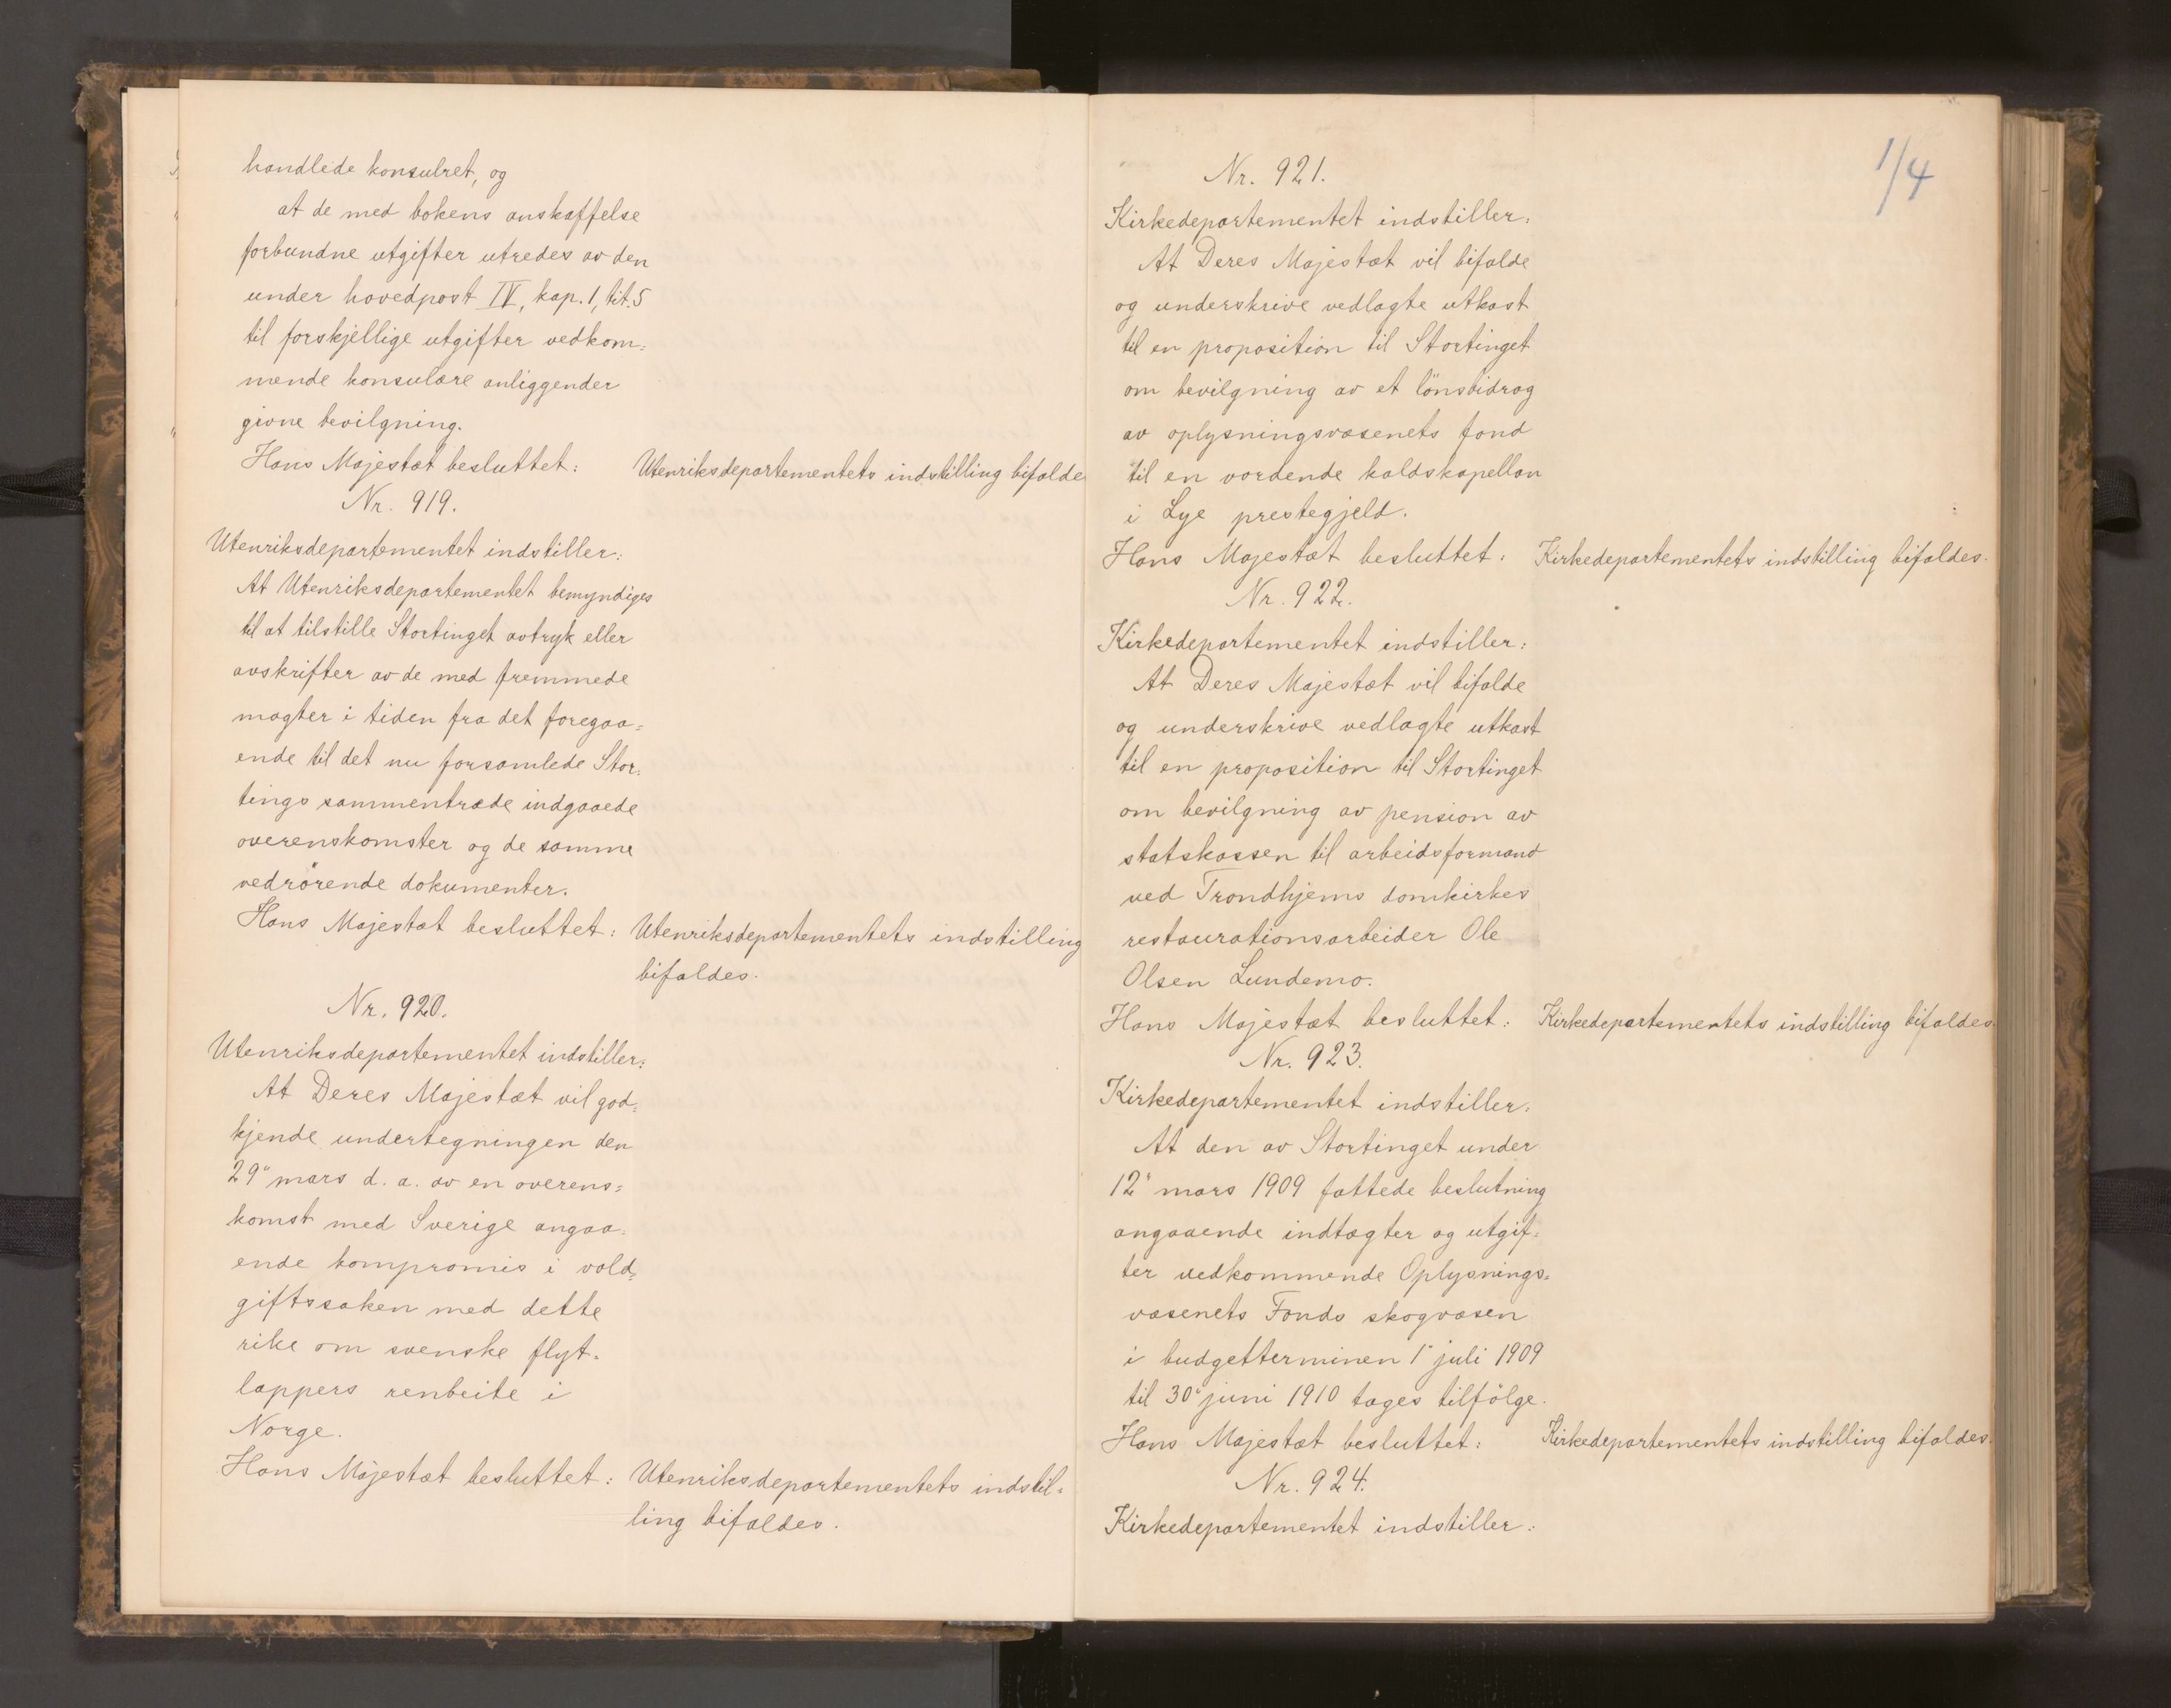 handlede konsulret, og
at de med bokens anskaffelse
forbundne utgifter utredes av den
under hovedpost IV, kap. 1, tit. 5
til forskjellige utgifter vedkom=
mende konsulære anliggender
givne bevilgning.
Hans Majestæt besluttet: Utenriksdepartementets indstilling bifalde
Nr. 919.
Utenriksdepartementet indstiller:
At Utenriksdepartementet bemyndiges
til at tilstille Stortinget avtryk eller
avskrifter av de med fremmede
magter i tiden fra det foregaa=
ende til det nu forsamlede Stor=
tings sammentræde indgaaede
overenskomster og de samme
vedrörende dokumenter.
Hans Majestæt besluttet: Utenriksdepartementets indstilling
bifaldes.
Nr. 920.
Utenriksdepartementet indstiller:
At Deres Majestæt vil god=
kjende undertegningen den
29" mars d. a. av en overens=
komst med Sverige angaa=
ende kompromis i vold=
giftssaken med dette
rike om svenske flyt=
lappers renbeite i
Norge.
Hans Majestæt besluttet: Utenriksdepartementets indstil=
ling bifaldes.
1/4
Nr. 921.
Kirkedepartementet indstiller:
At Deres Majestæt vil bifalde
og underskrive vedlagte utkast
til en proposition til Stortinget
om bevilgning av et lönsbidrag
av oplysningsvæsenets fond
til en vordende kaldskapellan
i Lye prestegjeld.
Hans Majestæt besluttet: Kirkedepartementets indstilling bifaldes.
Nr. 922.
Kirkedepartementet indstiller:
At Deres Majestæt vil bifalde
og underskrive vedlagte utkast
til en proposition til Stortinget
om bevilgning av pension av
statskassen til arbeidsformand
ved Trondhjems domkirkes
restaurationsarbeider Ole
Olsen Lundemo.
Hans Majestæt besluttet: Kirkedepartementets indstilling bifaldes.
Nr. 923.
Kirkedepartementet indstiller:
At den av Stortinget under
12" mars 1909 fattede beslutning
angaaende indtægter og utgif=
ter vedkommende Oplysnings=
væsenets Fonds skogvæsen
i budgetterminen 1" juli 1909
til 30" juni 1910 tages tilfölge.
Hans Majestæt besluttet: Kirkedepartementets indstilling bifaldes.
Nr. 924.
Kirkedepartementet indstiller: